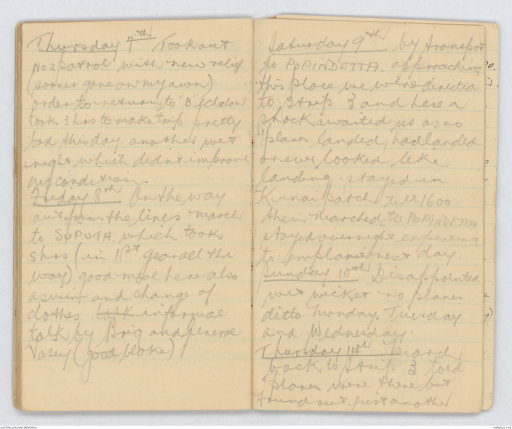 Thursday 7th Took out
no 2 patrol with new relief
(sooner gone on my own)
order to return to B. Echelon
took 3 hrs to make trip pretty
bad this day another wet
night which didn't improve
our condition.
Friday 8th On the way
out from the lines march
to SOPUTA, which took
5 hrs (in 1st gear all the
way) good meal here also
a swim and change of
clothes informal
talk by Brig and General
Vasey (good bloke)
Saturday 9th by transport
to POPINDETTA. approaching
this place we were directed
to Strip 3 and here a
shock awaited us as no
planes landed, had landed
or ever looked like
landing. stayed in
Kunai patch till 1600
then marched to POPINDETTA
stayed overnight expecting
to emplane next day
Sunday 10th Disappointed
wet wicket no planes
ditto Monday, Tuesday
and Wednesday.
Thursday 14th March
back to Strip 3 told
planes were there but
found out just another